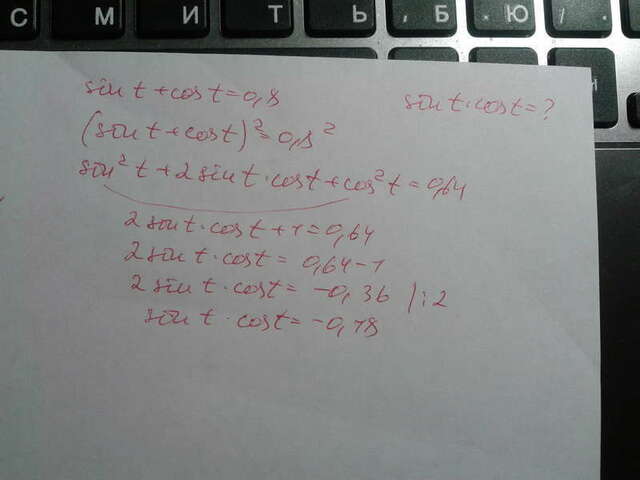 С М И Т Ь , Б . Ю / .
sin t + cos t = 0,8 sin t · cos t = ?
(sin t + cos t)² = 0,8²
sin² t + 2 sin t · cos t + cos² t = 0,64
2 sin t · cos t + 1 = 0,64
2 sin t · cos t = 0,64 - 1
2 sin t · cos t = -0,36 / : 2
sin t · cos t = -0,18